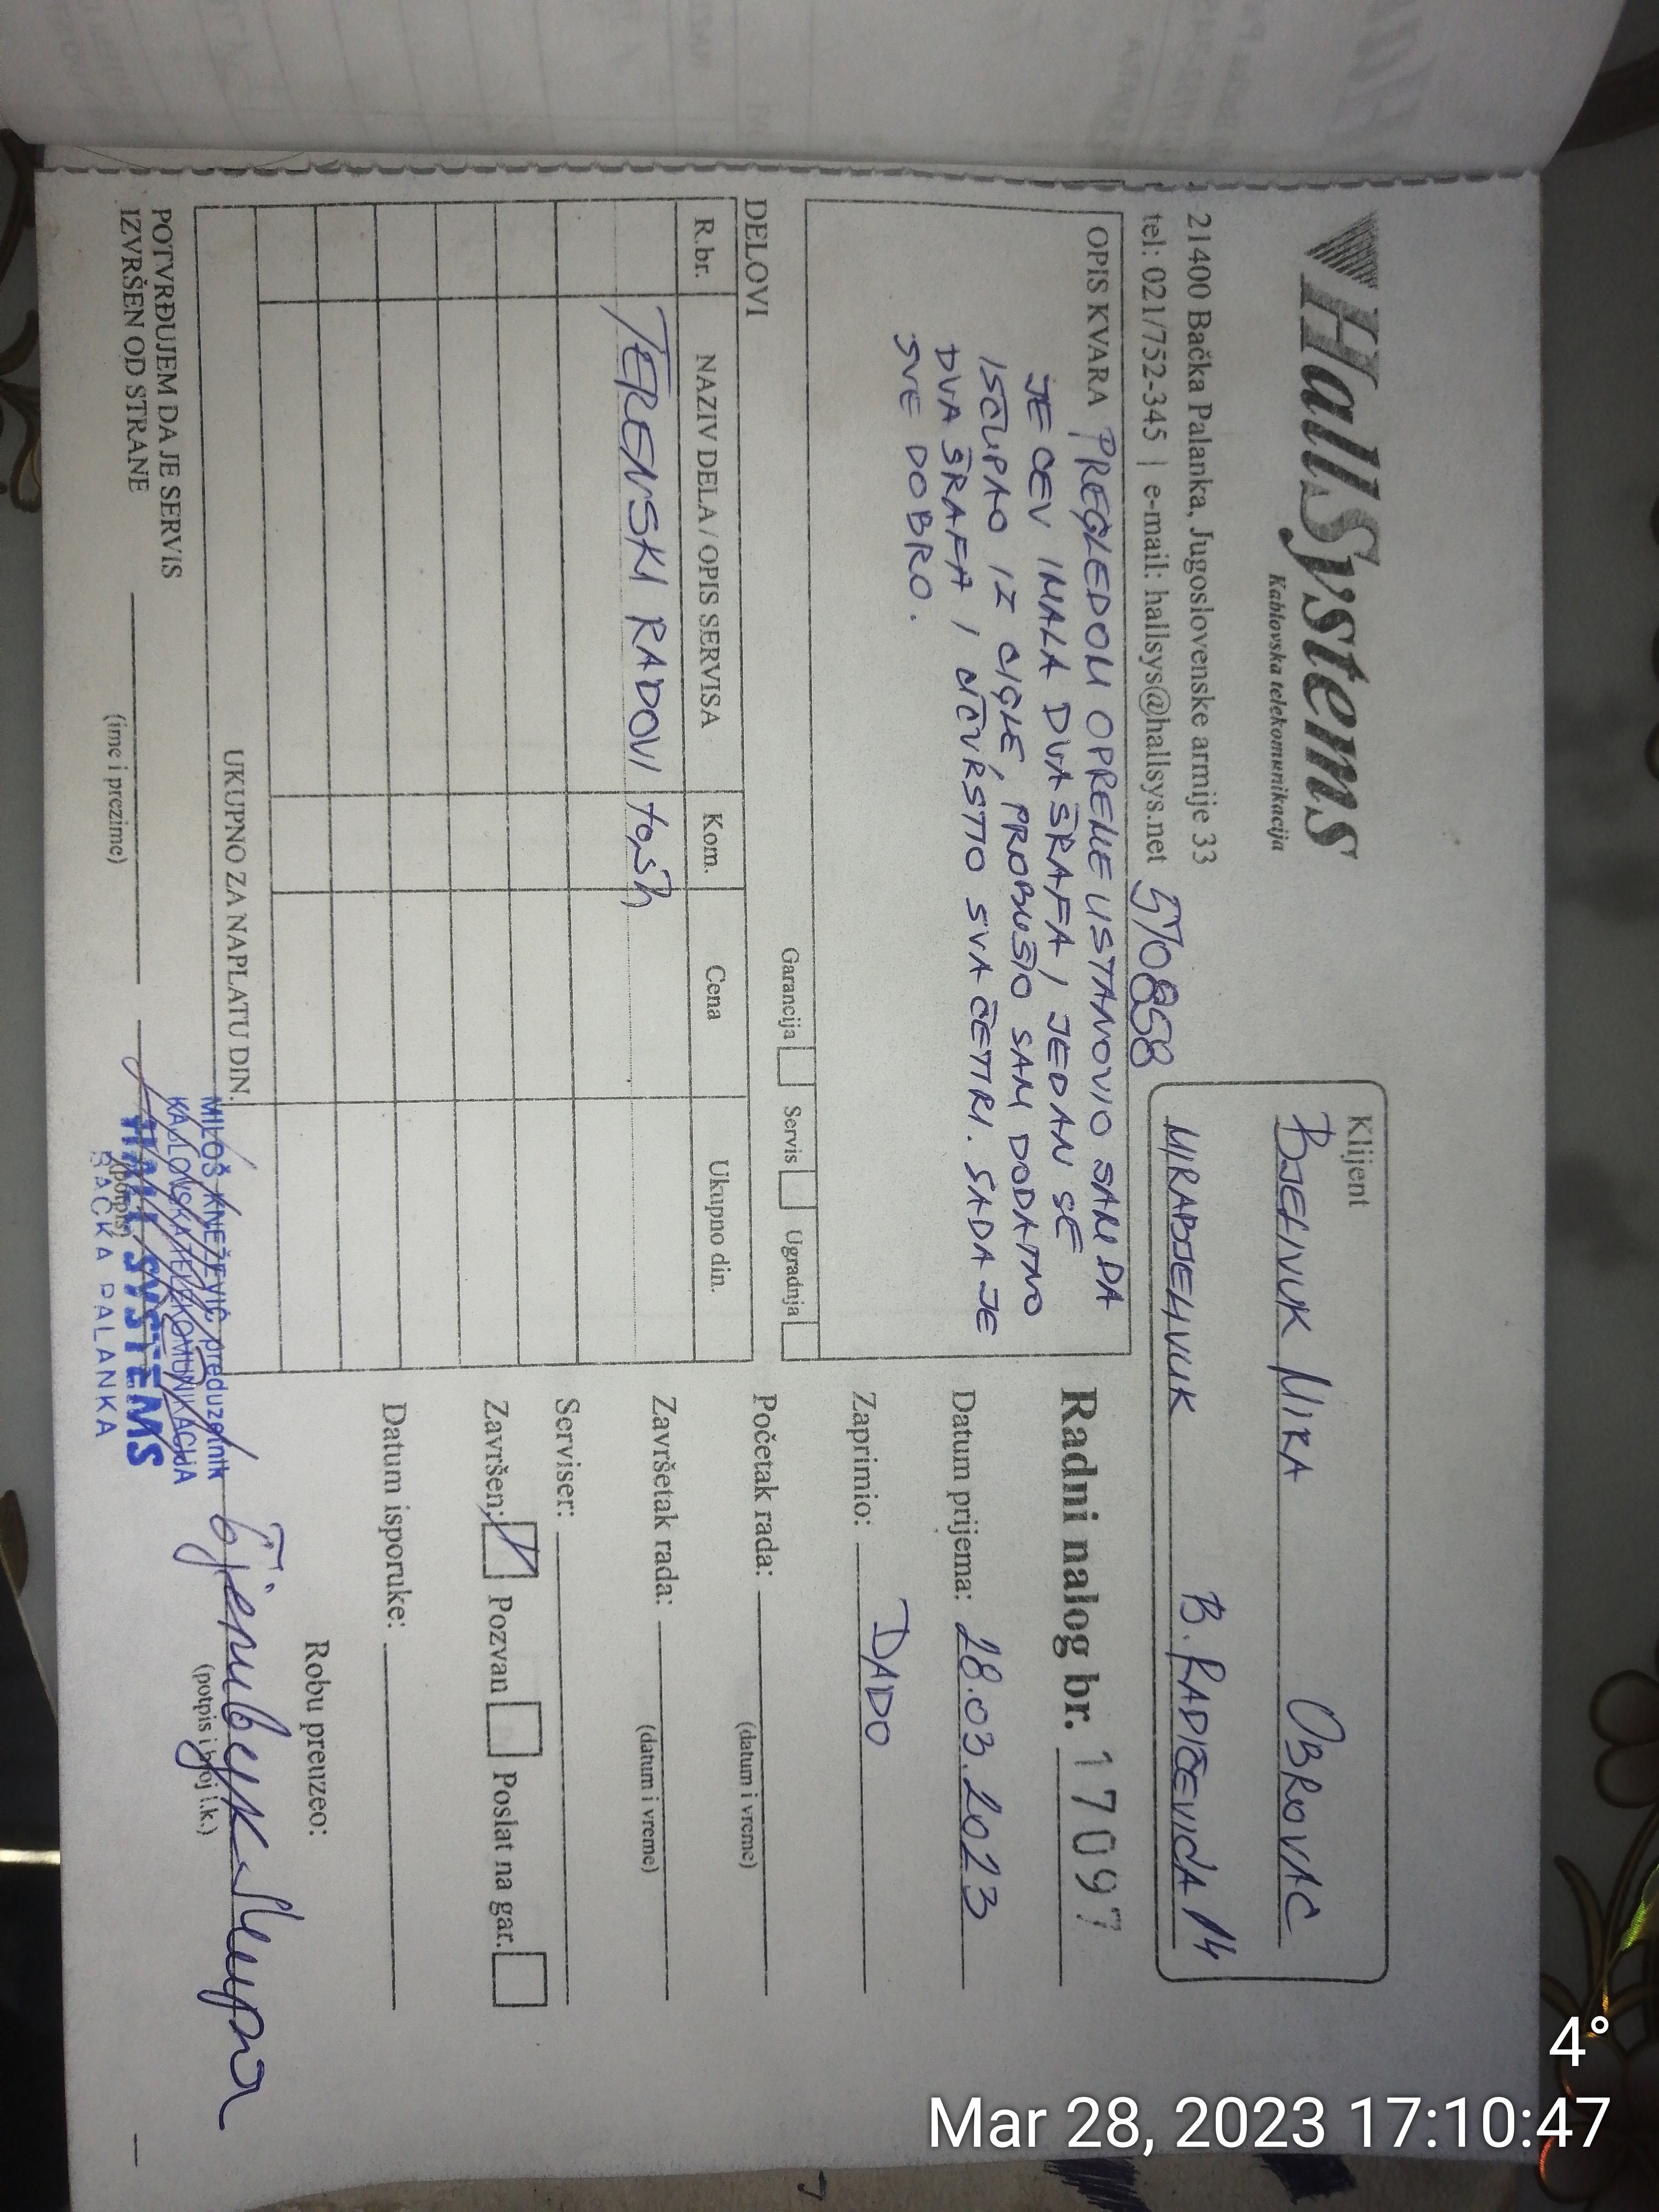 HallSystems
Kablovska telekomunikacija
21400 Bačka Palanka, Jugoslovenske armije 33
tel: 021/752-345 | e-mail: hallsys@hallsys.net
Klijent
BJELIVUK MIRA OBROVAC
MIRABJELIVUK B. RADIČEVIĆA 14
OPIS KVARA PREGLEDOM OPREME USTANOVIO SAM DA
JE CEV IMALA DVA ŠRAFA, JEDAN SE
IŠČUPAO IZ CIGLE, PROBUŠIO SAM DODATNO
DVA ŠRAFA I UČVRSTIO SVA ČETIRI. SADA JE
SVE DOBRO.
Garancija Servis Ugradnja
DELOVI
R.br. NAZIV DELA / OPIS SERVISA Kom. Cena Ukupno din.
TERENSKI RADOVI
UKUPNO ZA NAPLATU DIN.
POTVRĐUJEM DA JE SERVIS
IZVRŠEN OD STRANE
(ime i prezime)
(potpis)
MILOŠ KNEŽEVIĆ preduzetnik
KABLOVSKA TELEKOMUNIKACIJA
HALL SYSTEMS
BAČKA PALANKA
Radni nalog br. 17097
Datum prijema: 28.03.2023
Zaprimio: DADO
Početak rada:
(datum i vreme)
Završetak rada:
(datum i vreme)
Serviser:
Završen: Pozvan Poslat na gar.
Datum isporuke:
Robu preuzeo:
(potpis i broj l.k.)
4°
Mar 28, 2023 17:10:47